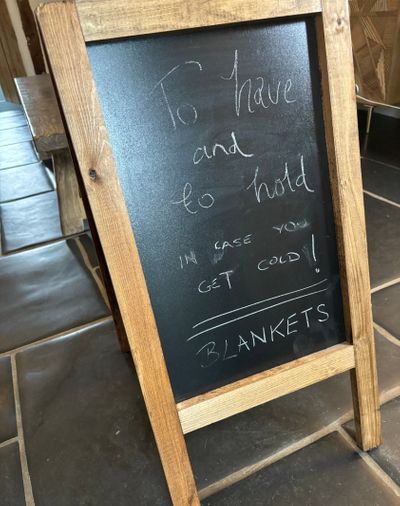 To have
and
to hold
IN CASE YOU
GET COLD!
BLANKETS